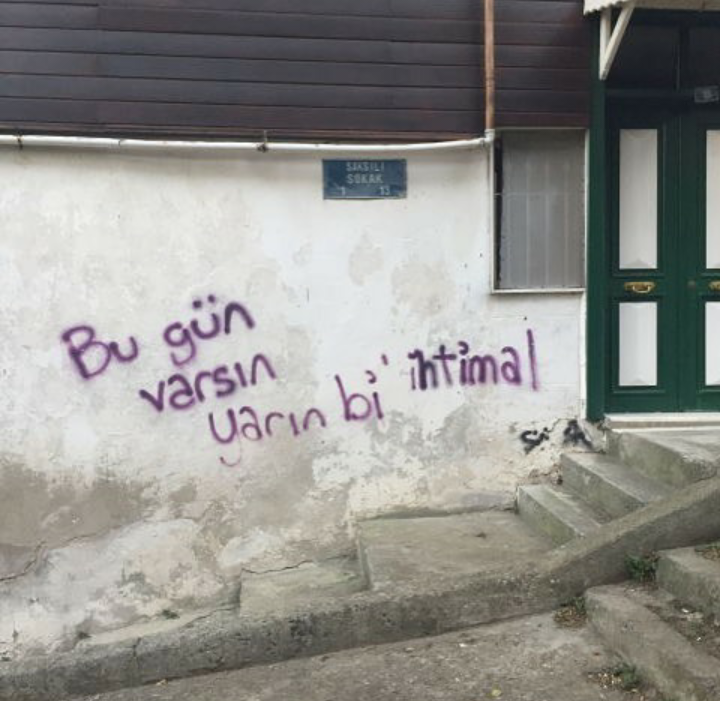 SAKSILI
SOKAK
1 13
Bu gün
varsın
yarın bi' ihtimal